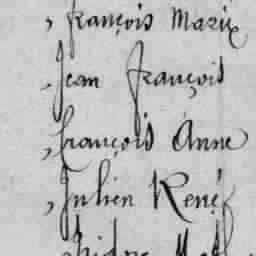 , François Marie
, Jean François
, François Anne
, Julien René
Isidore